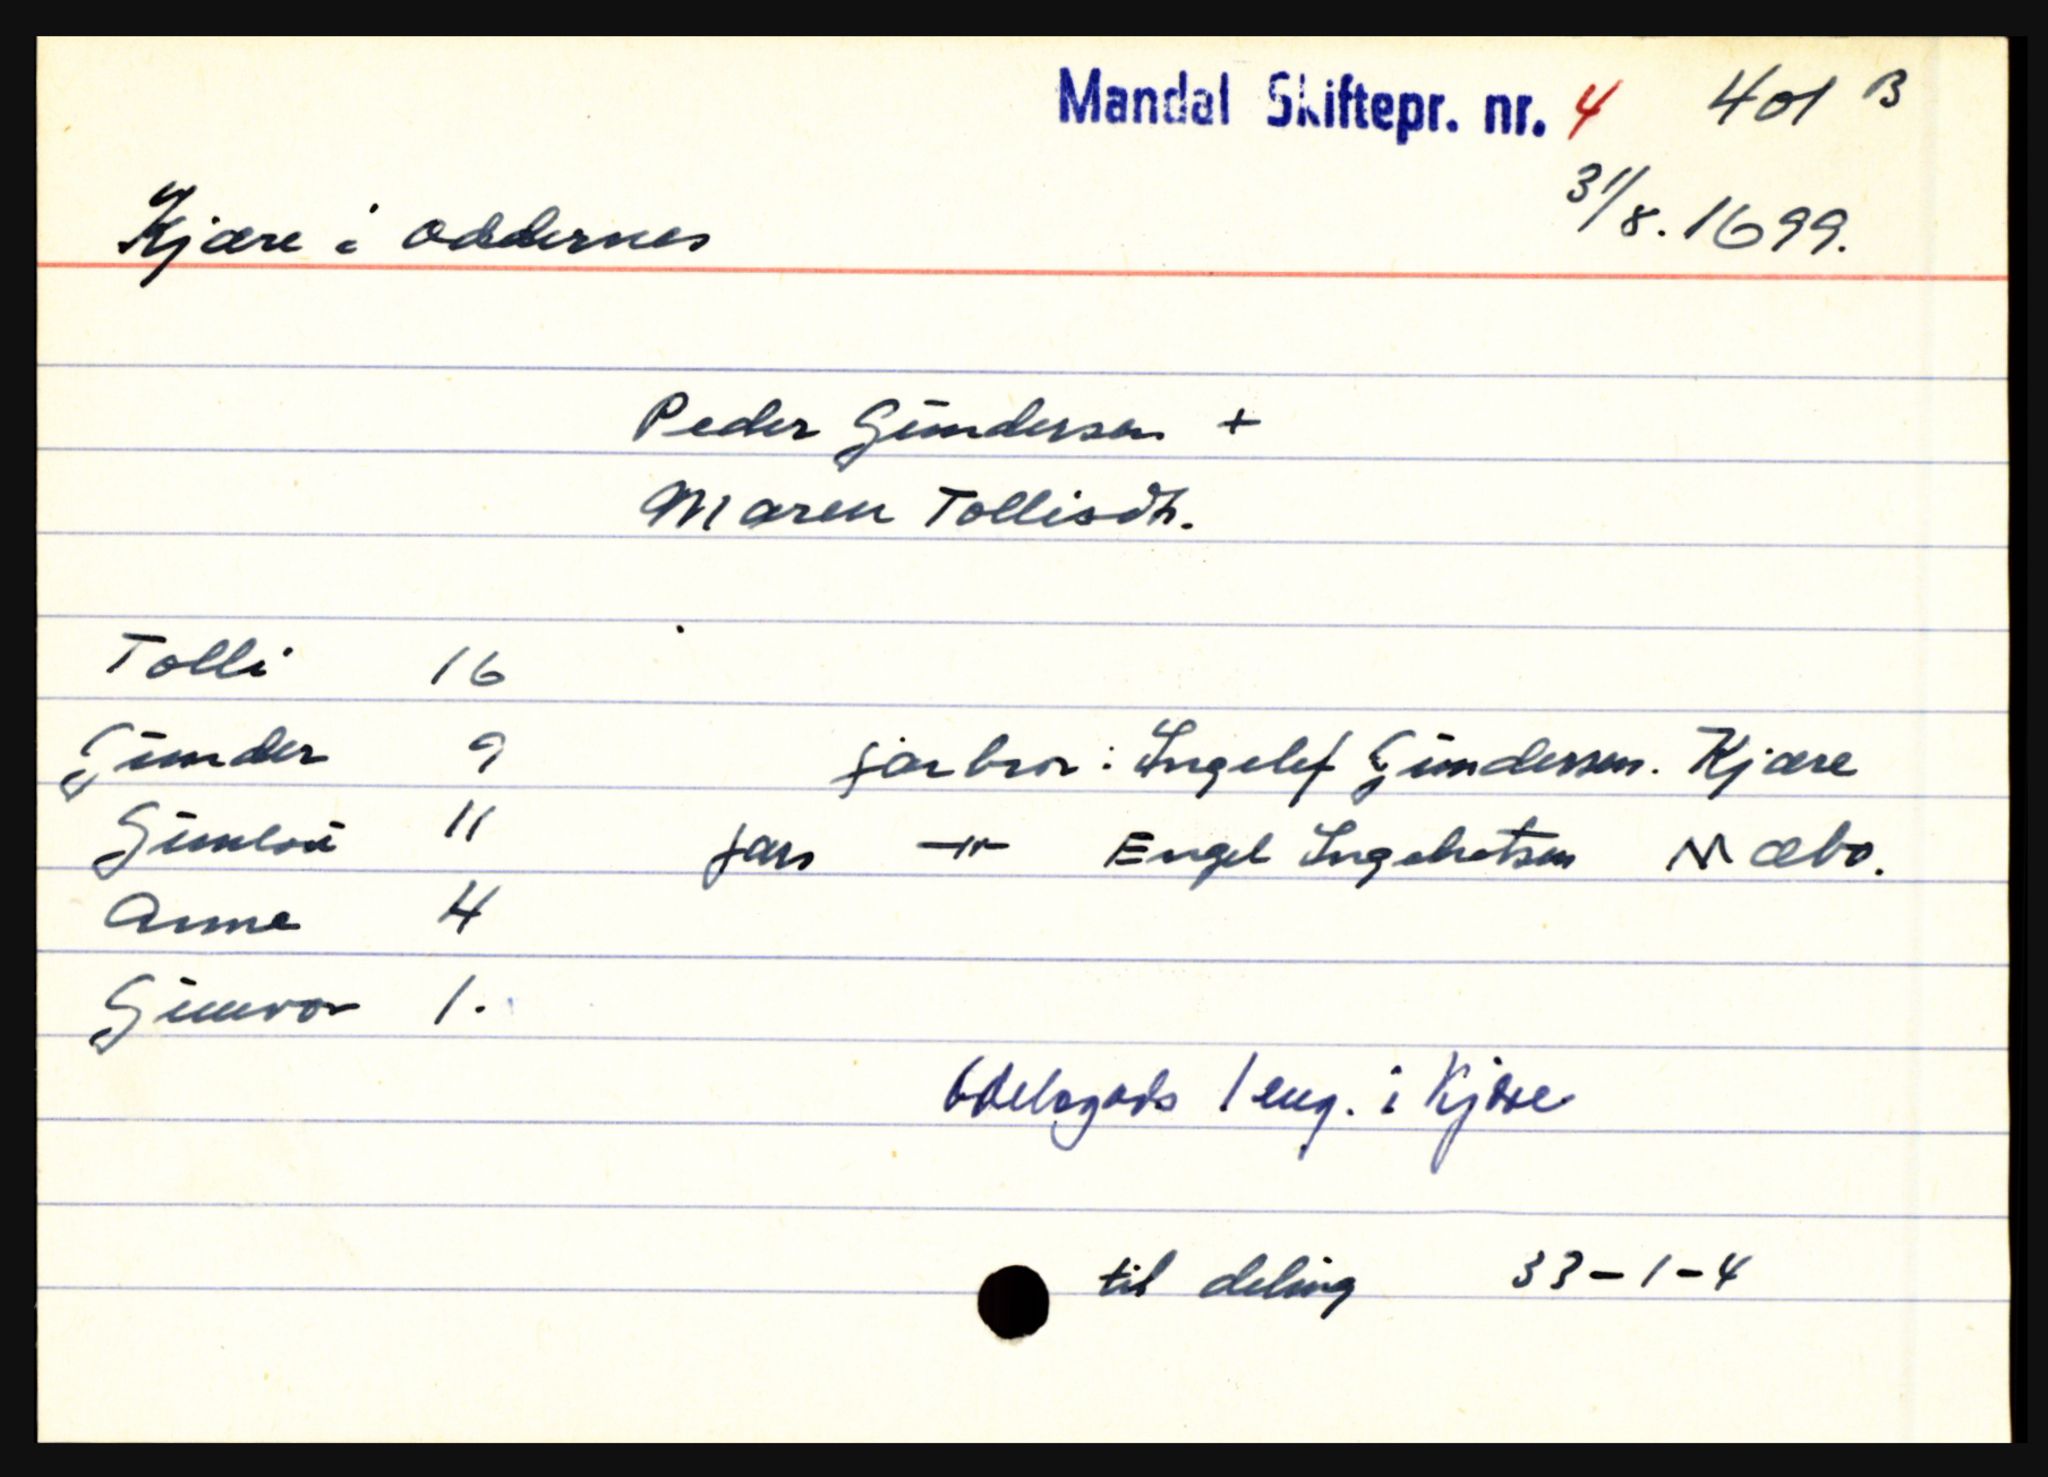 Mandal Skiftepr. nr. 4 401 B
31/8. 1699.
Kjære i Oddernes
Peder Gundersen +
Maren Tollisdtr.
Tolli 16
Gunder 9 farbror: Ingelef Gundersen. Kjære
Gunlou 11 fars -"- Engel Mæbo.
Anne 4
Gunvor 1.
Odelsgods 1 eng. i Kjære
til deling 33-1-4